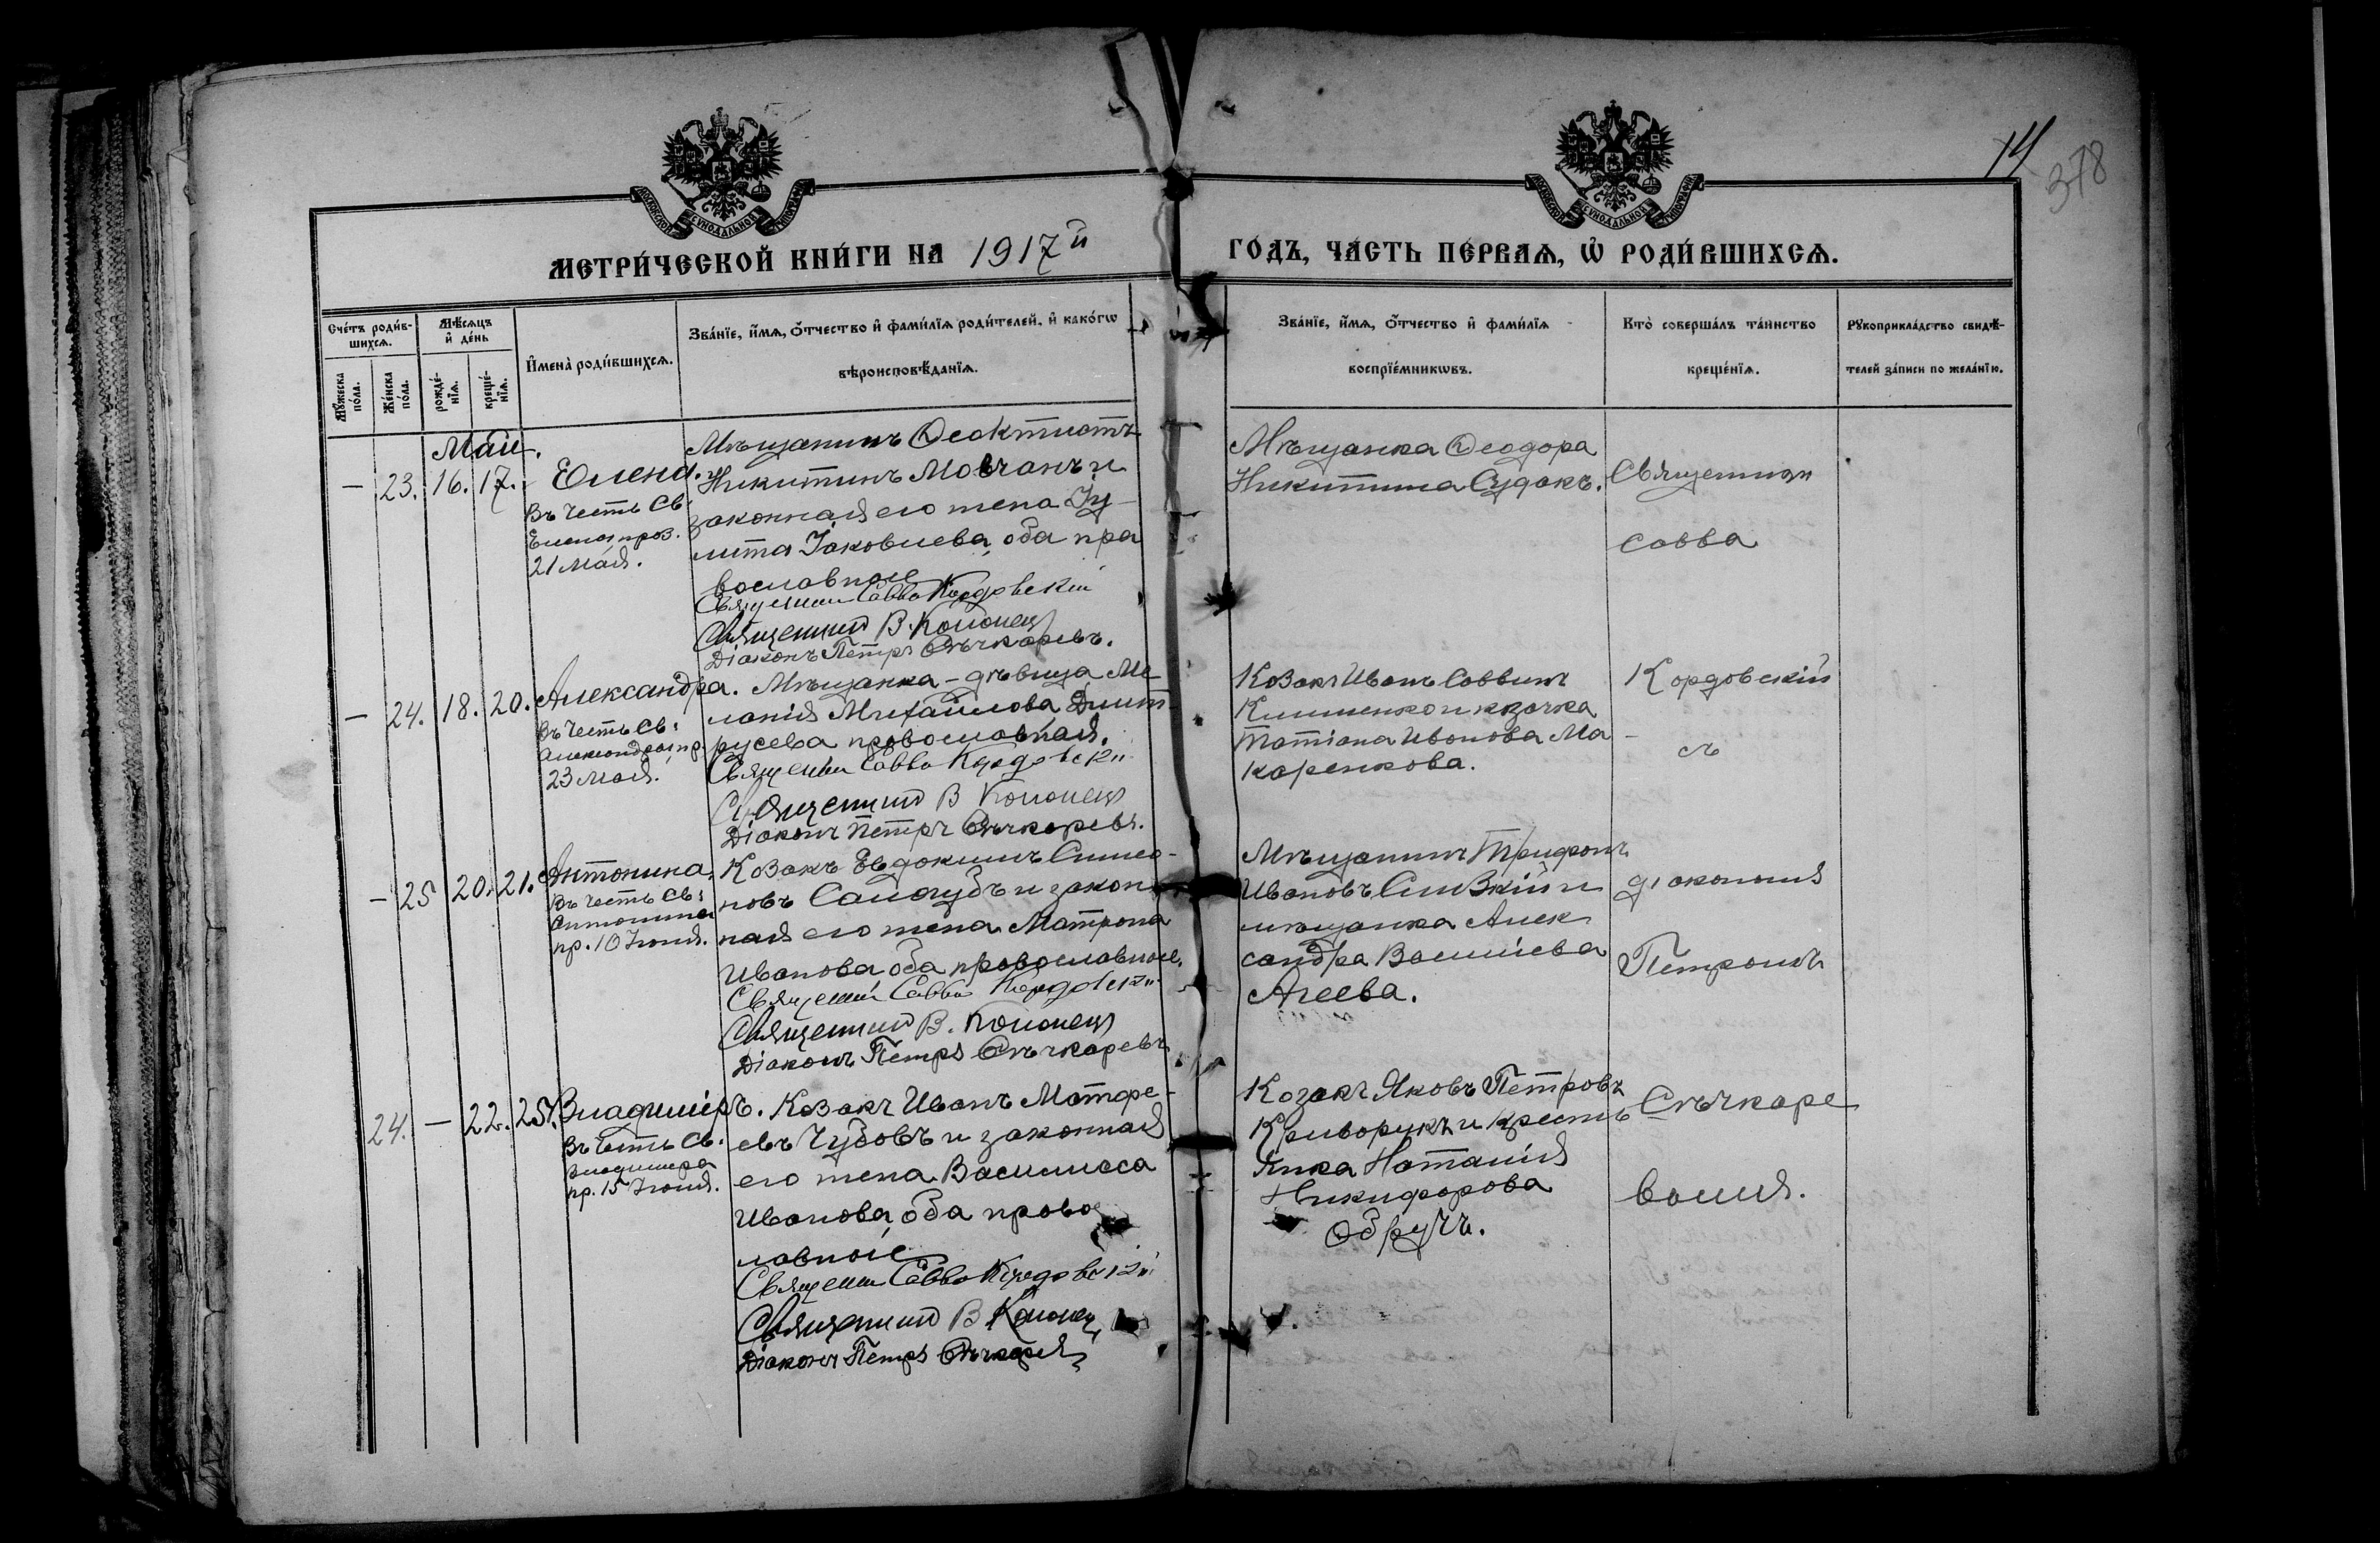 14
378
МОСКОВСКОЙ СУНОДАЛЬНОЙ ТИПОГРАФІИ
МОСКОВСКОЙ СУНОДАЛЬНОЙ ТИПОГРАФІИ
МЕТРИ́ЧЕСКОЙ КНИ́ГИ НА 1917й
ГО́ДЪ, ЧА́СТЬ ПЕ́РВАѦ, Ѡ҆ РОДИ́ВШИХСѦ.
Сче́тъ роди́в-
шихсѧ.
Мѣ́сѧцъ
и҆ де́нь
И҆мена̀ роди́вшихсѧ.
Зва́нїе, и҆́мѧ, ѻ҆́тчество и҆ фами́лїѧ роди́телей, и҆ како́гѡ
вѣроисповѣ́данїѧ.
Мꙋ́жеска
по́ла.
Же́нска
по́ла.
рожде́-
нїѧ.
креще́-
нїѧ.
Зва́нїе, и҆́мѧ, ѻ҆́тчество и҆ фами́лїѧ
воспрїе́мникѡвъ.
Кто̀ соверша́лъ та́инство
креще́нїѧ.
Рꙋкоприкла́дство свидѣ́-
телей за́писи по жела́нїю.
Май.
— 23. 16. 17. Елена.
Въ честь Св.
Елены праз.
21 Мая.
Мѣщанинъ Ѳеоктистъ
Никитинъ Мовчанъ и
законная его жена Іу-
лита Іаковлева, оба пра
вославные
Священник Савва Кордовскій
Священник В. Кононец
Діаконъ Петръ Сѣчкаревъ.
Мѣщанка Ѳеодора
Никитина Судакъ.
Священник
Савва
— 24. 18. 20. Александра.
Въ честь Св.
Александры пр.
23 мая.
Мѣщанка-дѣвица Ме-
ланія Михайлова Дмит-
русева православная.
Священник Савва Кордовскій
Священник В Кононец
Діаконъ Петръ Сѣчкаревъ.
Козакъ Иванъ Саввинъ
Клименко и козачка
Татіана Иванова Ма-
каренкова.
Кордовскій
съ
— 25 20. 21. Антонина.
Въ честь Св.
Антонины
пр. 10 Іюня.
Козакъ Евдокимъ Симео-
новъ Самаудъ и закон-
ная его жена Матрона
Иванова, оба православные.
Священник Савва Кордовскій
Священник В. Кононец
Діаконъ Петръ Сѣчкаревъ
Мѣщанинъ Трифонъ
Ивановъ и
мѣщанка Алек
сандра Васильева
Агеева.
діакономъ
Петромъ
24. — 22. 25. Владиміръ.
Въ честь Св.
Владимира
пр. 15 Іюля.
Козакъ Иванъ Матфе-
евъ Чубовъ и законная
его жена Василисса
Иванова, оба право
лавные
Священник Савва Кордовскій
Священник В Кононец
Діаконъ Петръ Сѣчкаревъ
Козакъ Яковъ Петровъ
Криворукъ и кресть
янка Наталія
Никифорова
Обручъ.
Сѣчкаре
вымъ.